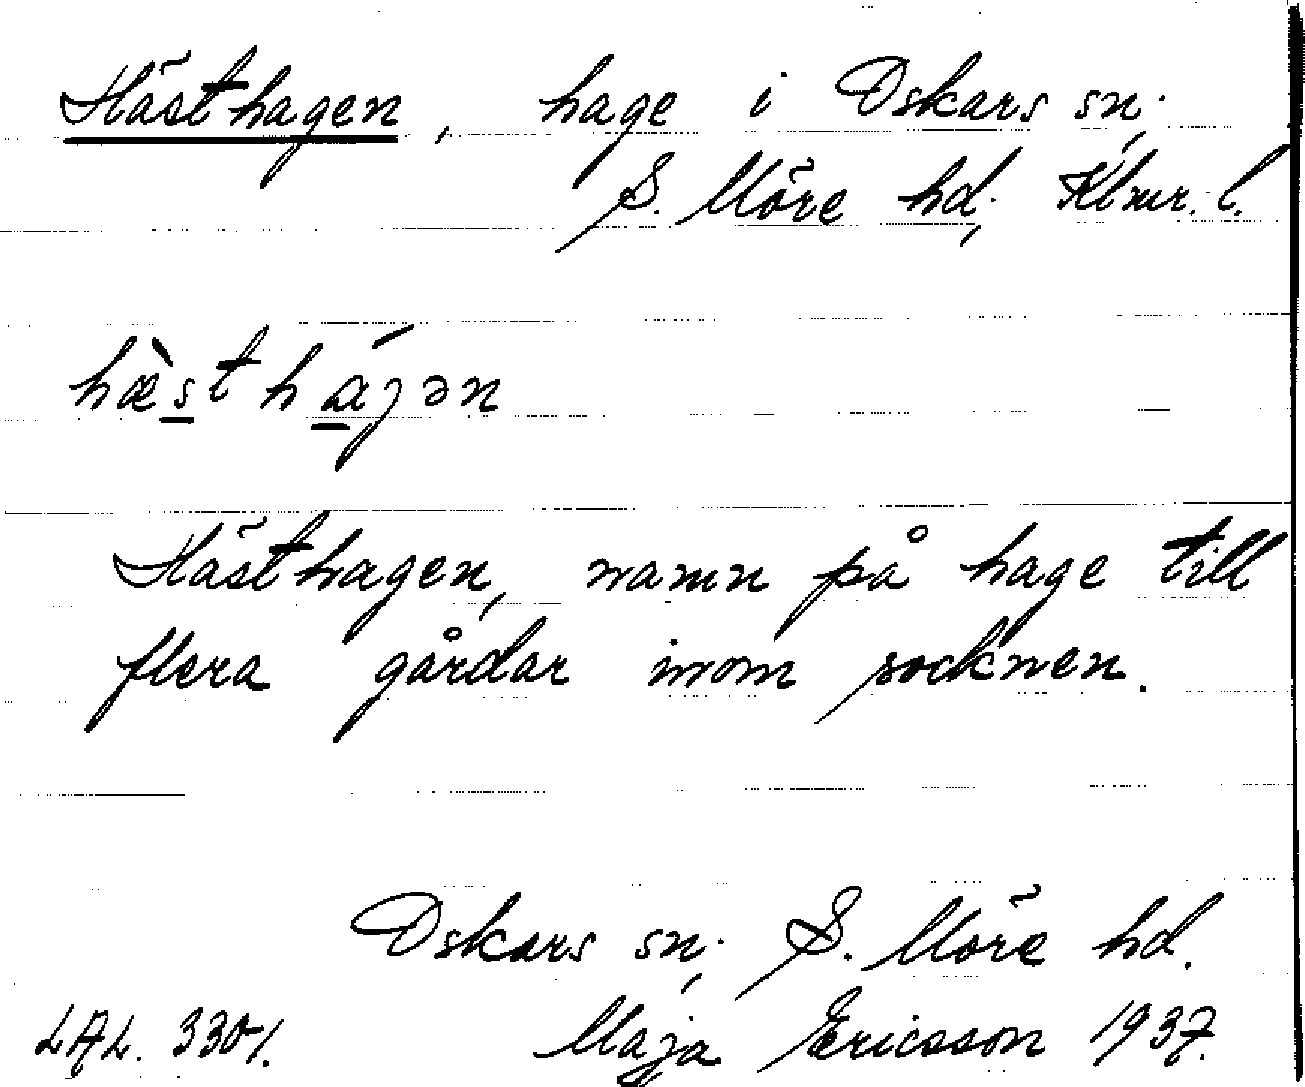 Hästhagen, hage i Oskars sn;
S. Möre hd; Klmr. l.
hæ̀sthájən
Hästhagen, namn på hage till
flera gårdar inom socknen.
Oskars sn; S. Möre hd.
LAL. 3301. Maja Ericsson 1937.